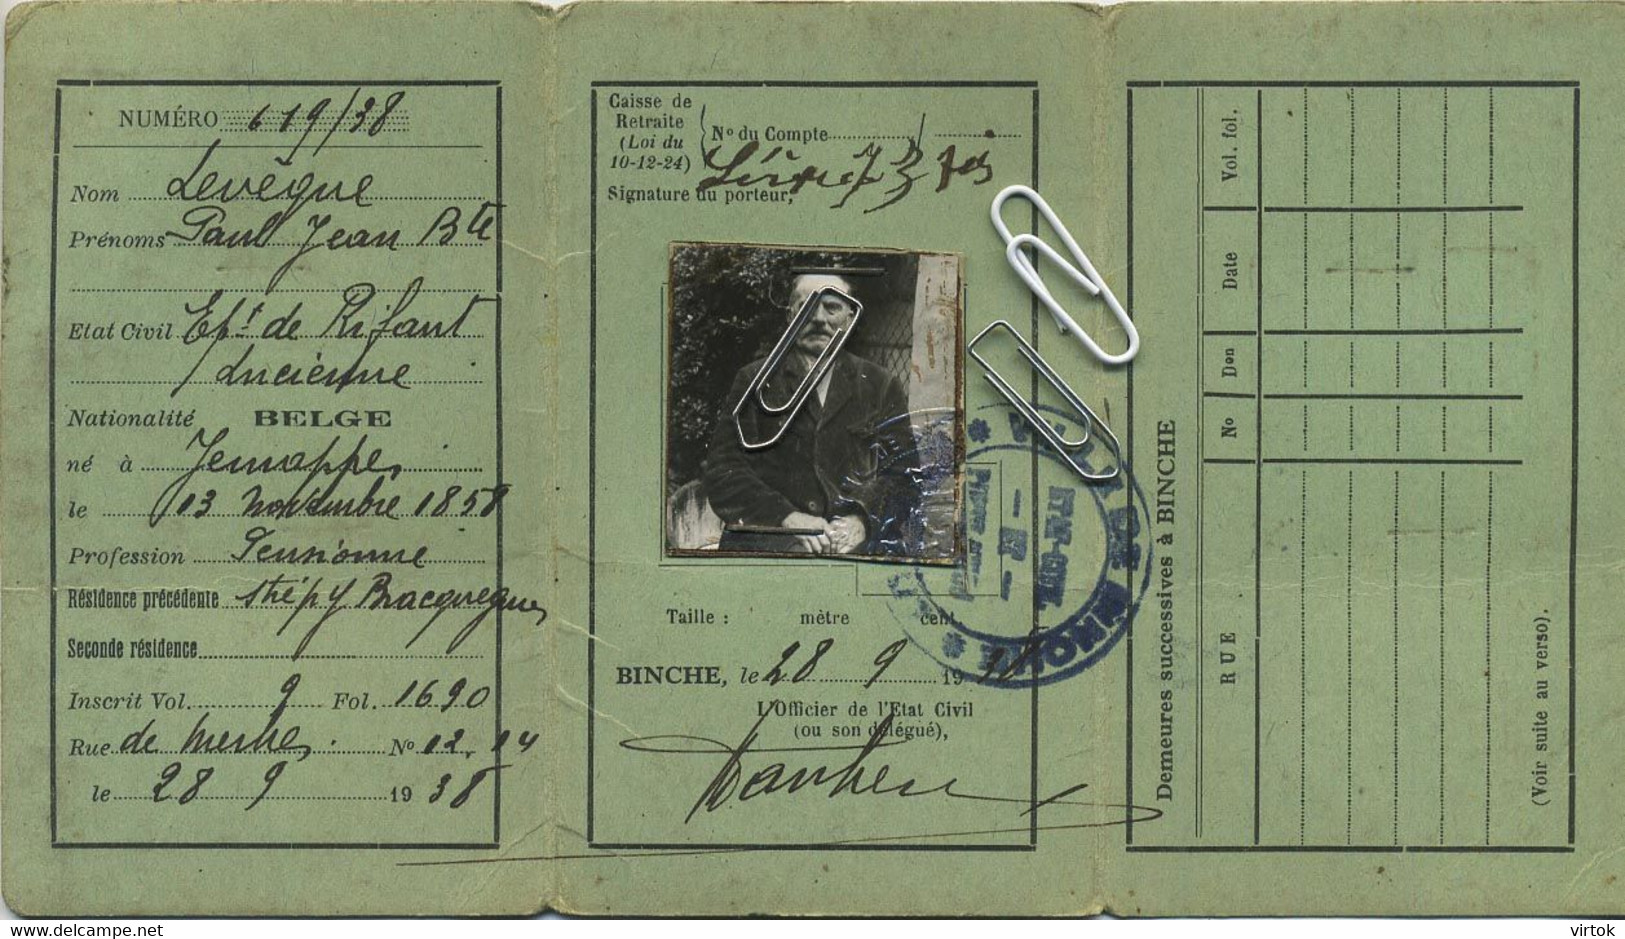 NUMÉRO 619/38
Nom Levêque
Prénoms Paul Jean Bte
Etat Civil Ept de Rifaut
Lucienne
Nationalité BELGE
né à Jemappes
le 13 novembre 1858
Profession Pensionné
Résidence précédente Strépy Bracquegnies
Seconde résidence
Inscrit Vol. 9 Fol. 1690
Rue de Merbes No 12. 14
le 28 9 1938
Caisse de
Retraite
(Loi du
10-12-24)
No du Compte
Signature du porteur,
Taille : mètre cent.
BINCHE, le 28 9 1938
L'Officier de l'Etat Civil
(ou son délégué),
VILLE DE BINCHE
ETAT-CIVIL
Demeures successives à BINCHE
RUE
No
Don
Date
Vol. fol.
(Voir suite au verso).
delcampe.net
virtok